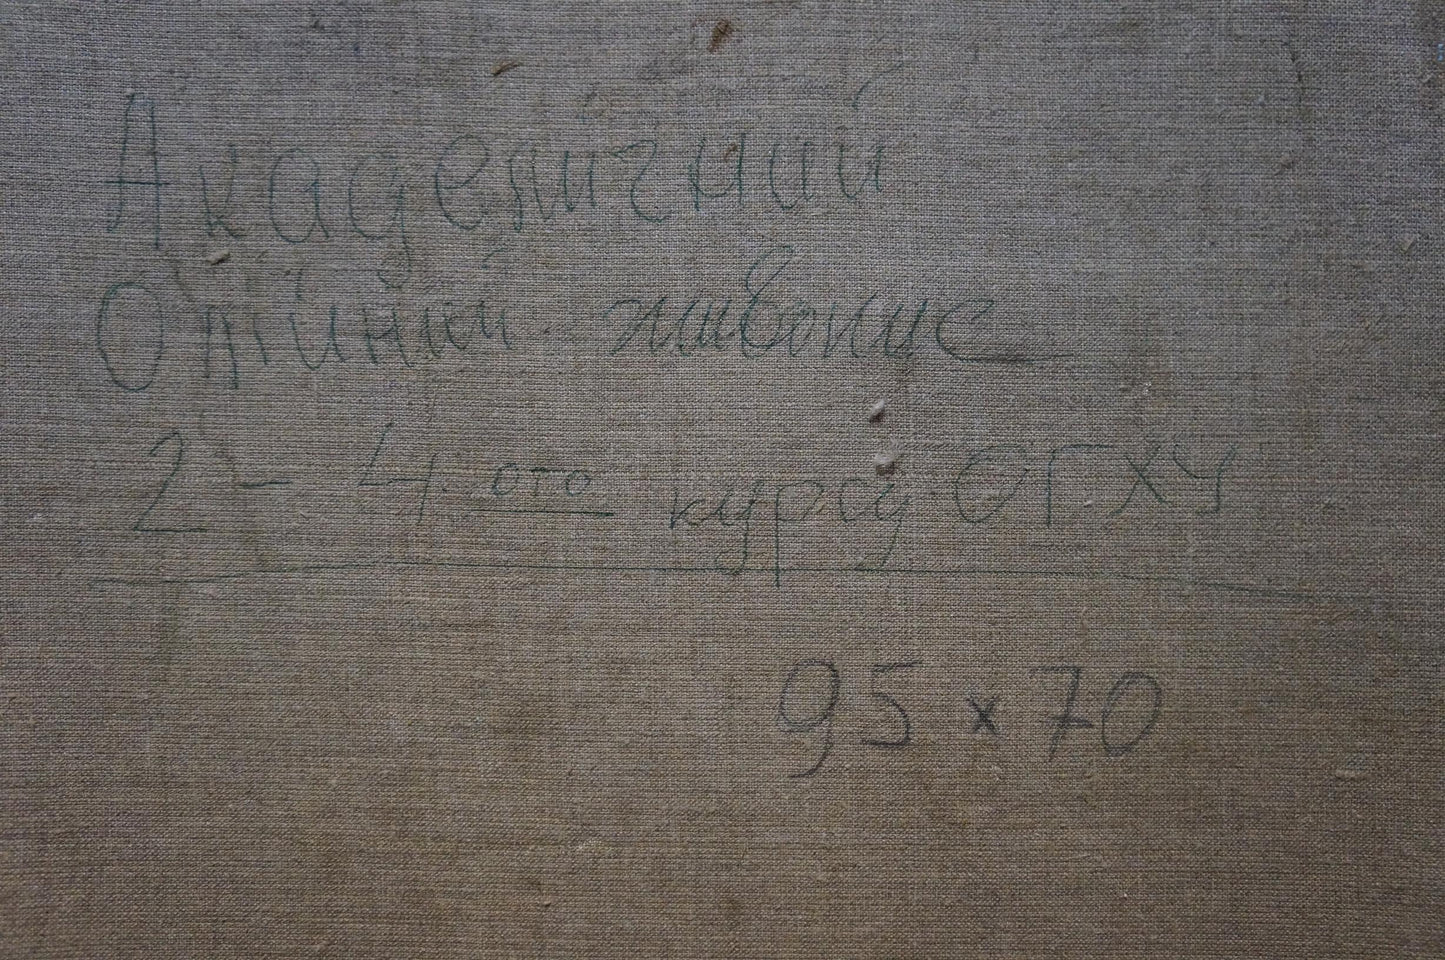 Академічний
Олійний живопис
2 - 4 ого курсу ОГХУ
95 x 70